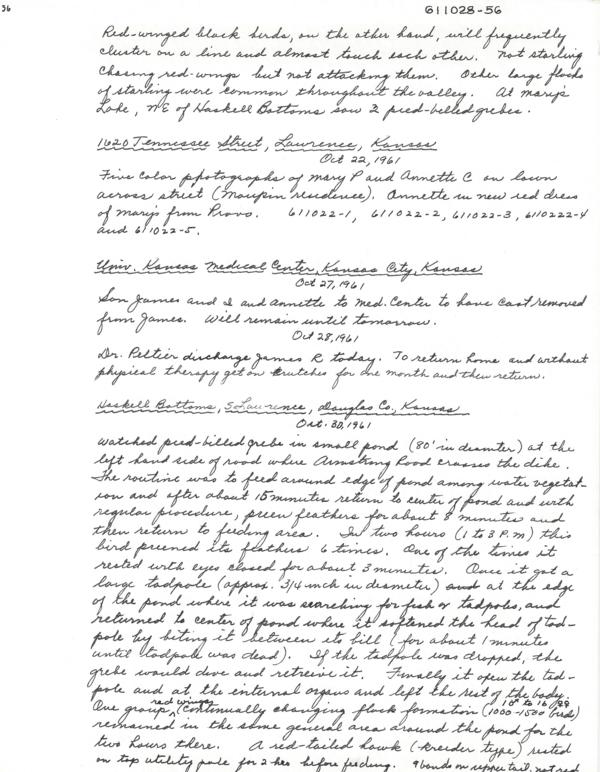 36
611028-56
Red-winged black birds, on the other hand, will frequently
cluster on a line and almost touch each other. Not starling
chasing red-wings but not attacking them. Other large flocks
of starling were common throughout the valley. At Mary's
Lake, NE of Haskell Bottoms saw 2 pied-billed grebes.
1620 Tennessee Street, Lawrence, Kansas
Oct 22, 1961
Five color photographs of Mary P and Annette C on lawn
across street (Maupin residence). Annette in new red dress
of Mary's from Provo. 611022-1, 611022-2, 611022-3, 6110222-4
and 611022-5.
Univ. Kansas Medical Center, Kansas City, Kansas
Oct 27, 1961
Son James and I and Annette to Med. Center to have cast removed
from James. Will remain until tomorrow.
Oct 28, 1961
Dr. Peltier discharge James R today. To return home and without
physical therapy get on crutches for one month and then return.
Haskell Bottoms, So Lawrence, Douglas Co, Kansas
Oct. 30, 1961
Watched pied-billed grebe in small pond (80' in diameter) at the
left hand side of road where Armstrong Road crosses the dike.
The routine was to feed around edge of pond among water vegetat-
ion and after about 15 minutes return to center of pond and with
regular procedure, preen feathers for about 8 minutes and
then return to feeding area. In two hours (1 to 3 P.M) this
bird preened its feathers 6 times. One of the times it
rested with eyes closed for about 3 minutes. Once it got a
large tadpole (approx. 3/4 inch in diameter) and at the edge
of the pond where it was searching for fish or tadpoles, and
returned to center of pond where it softened the head of tad-
pole by biting it between its bill (for about 1 minutes
until tadpole was dead). If the tadpole was dropped, the
grebe would dive and retreive it. Finally it open the tad-
pole and at the internal organs and left the rest of the body.
One group red wings (continually changing flock formation (1000-1500 birds)
remained in the same general area around the pond for the
two hours there. A red-tailed hawk (kreider type) rested
on top utility pole for 2 hrs before feeding. 9 bands on upper tail, not red